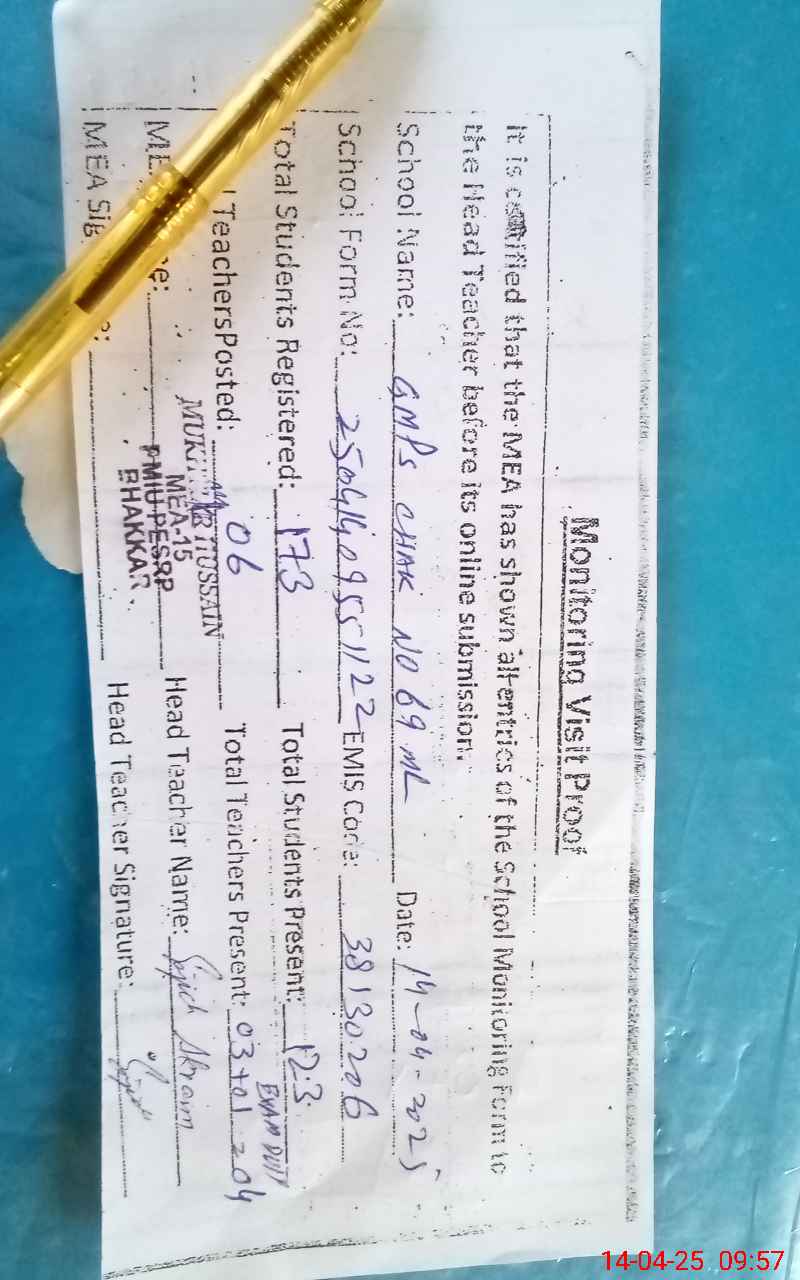 Monitoring Visit Proof
It is certified that the MEA has shown all entries of the School Monitoring Form to
the Head Teacher before its online submission.
School Name: GMPS CHAK NO 69 ML Date: 14-04-2025
School Form No: EMIS Code: 38130206
Total Students Registered: 173 Total Students Present: 123
TeachersPosted: 06 Total Teachers Present: 03+01=04
EXAM DUTY
MUKHTAR HUSSAIN
MEA-15
PMIU-PESRP
BHAKKAR
Head Teacher Name: Akram
MEA Head Teacher Signature:
14-04-25 09:57